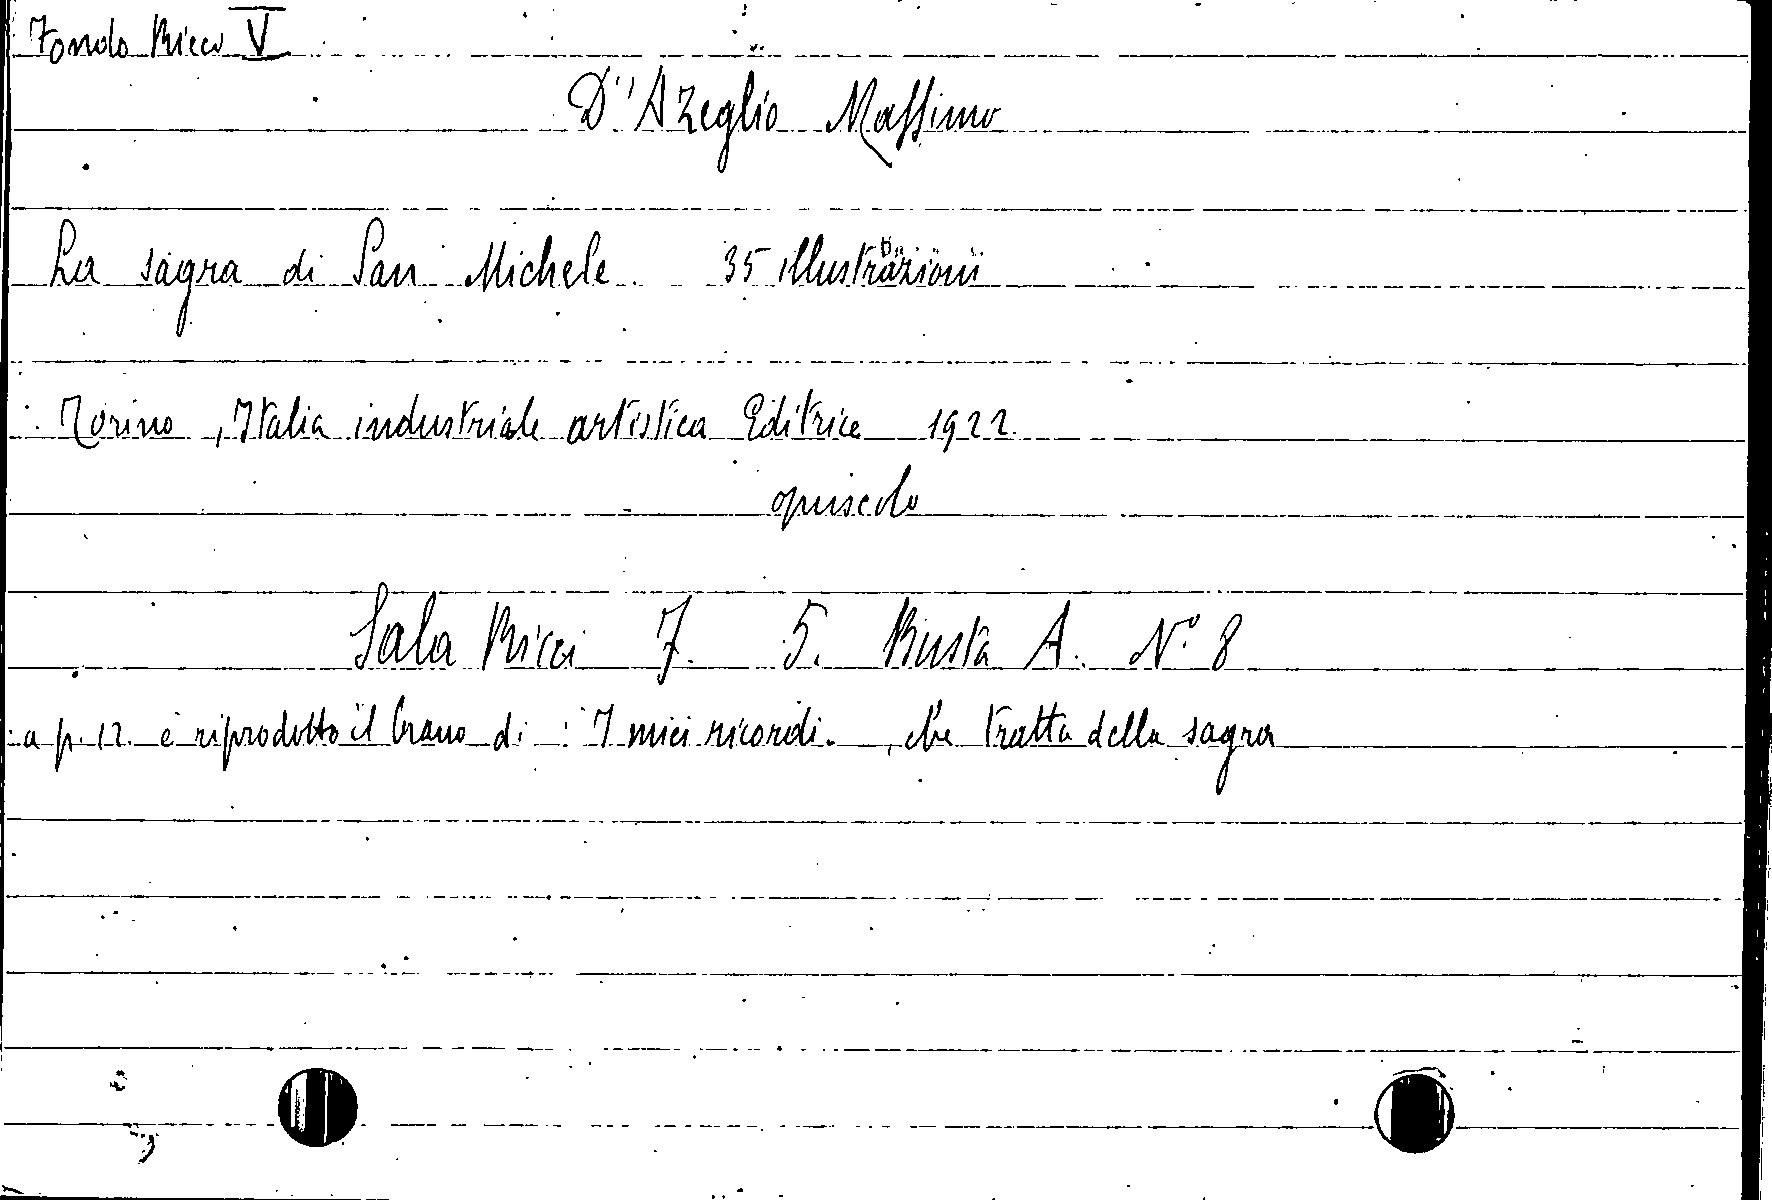 Fondo Ricci V
D'Azeglio Massimo
La sagra di San Michele. 35 illustrazioni
Torino, Italia industriale artistica Editrice 1922.
opuscolo
Sala Ricci 7. 5. Busta A. N.° 8
a p. 12. è riprodotto il brano di : I miei ricordi. , che tratta della sagra